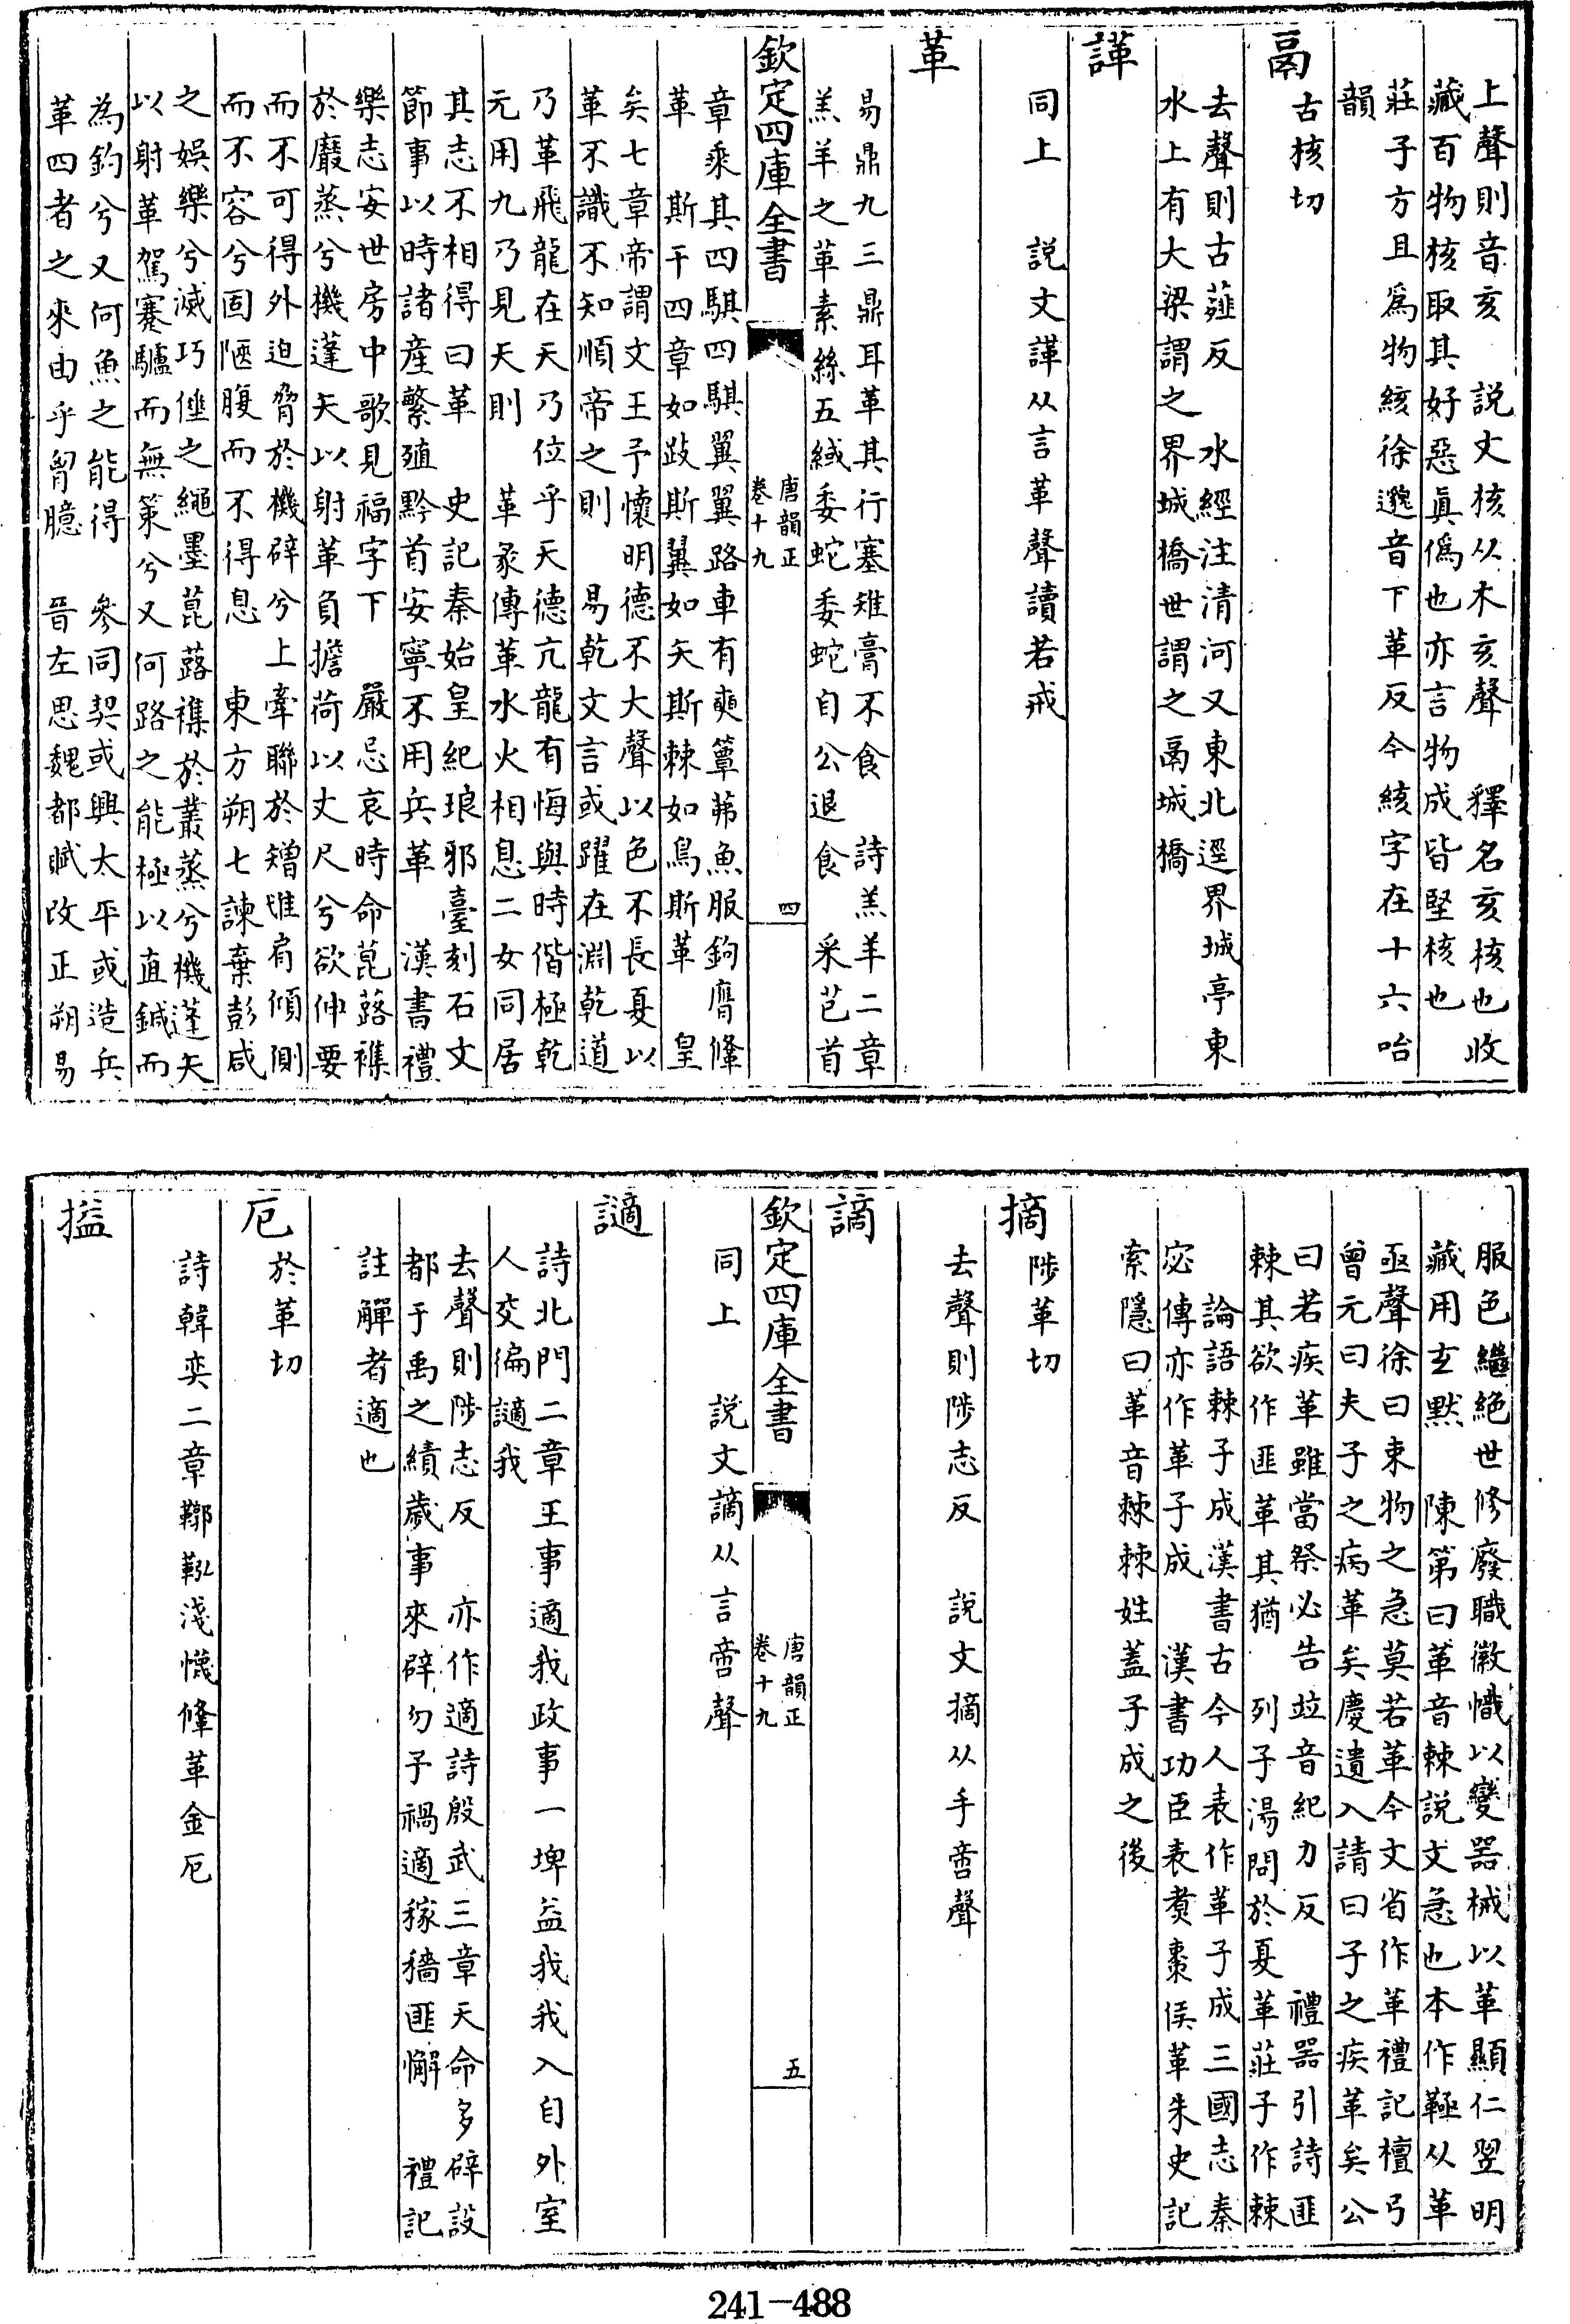 上聲則音亥　説文核从木亥聲　釋名亥核也收
藏百物核取其好惡眞僞也亦言物成皆堅核也
莊子方且爲物絃徐邈音下革反今絃字在十六咍
韻
鬲
古核切
去聲則古薤反　水經注清河又東北逕界城亭東
水上有大梁謂之界城橋世謂之鬲城橋
諽
同上　説文諽从言革聲讀若戒
革
易鼎九三鼎耳革其行塞雉膏不食　詩羔羊二章
羔羊之革素絲五緎委蛇委蛇自公退食　采芑首
欽定四庫全書
唐韻正
卷十九
四
章乘其四騏四騏翼翼路車有奭簟茀魚服鉤膺鞗
革　斯干四章如跂斯翼如矢斯棘如鳥斯革　皇
矣七章帝謂文王予懷明德不大聲以色不長夏以
革不識不知順帝之則　易乾文言或躍在淵乾道
乃革飛龍在天乃位乎天德亢龍有悔與時偕極乾
元用九乃見天則　革彖傳革水火相息二女同居
其志不相得曰革　史記秦始皇紀琅邪臺刻石文
節事以時諸產繁殖黔首安寧不用兵革　漢書禮
樂志安世房中歌見福字下　嚴忌哀時命菎蕗襍
於黀蒸兮機蓬矢以射革負擔荷以丈尺兮欲伸要
而不可得外迫脅於機辟兮上牽聯於矰隿肩傾側
而不容兮固陿腹而不得息　東方朔七諫棄彭咸
之娛樂兮滅巧倕之繩墨菎蕗襍於叢蒸兮機蓬矢
以射革駕蹇驢而無策兮又何路之能極以直鍼而
為釣兮又何魚之能得　參同契或興太平或造兵
革四者之來由乎胷臆　晉左思魏都賦改正朔易
服色繼絕世修廢職徽幟以變器械以革顯仁翌明
藏用玄默　陳第曰革音棘説文急也本作䩯从革
亟聲徐曰束物之急莫若革今文省作革禮記檀弓
曾元曰夫子之病革矣慶遺入請曰子之疾革矣公
曰若疾革雖當祭必告竝音紀力反　禮器引詩匪
棘其欲作匪革其猶　列子湯問於夏革莊子作棘
論語棘子成漢書古今人表作革子成三國志秦
宓傳亦作革子成　漢書功臣表煑棗侯革朱史記
索隱曰革音棘棘姓蓋子成之後
摘
陟革切
去聲則陟志反　説文摘从手啻聲
謫
同上　説文謫从言啻聲
欽定四庫全書
唐韻正
卷十九
五
讁
詩北門二章王事適我政事一埤益我我入自外室
人交徧讁我
去聲則陟志反　亦作適詩殷武三章天命多辟設
都于禹之績歲事來辟勿予禍適稼穡匪懈　禮記
註觶者適也
厄
於革切
詩韓奕二章鞹鞃淺幭鞗革金厄
搤
241-488